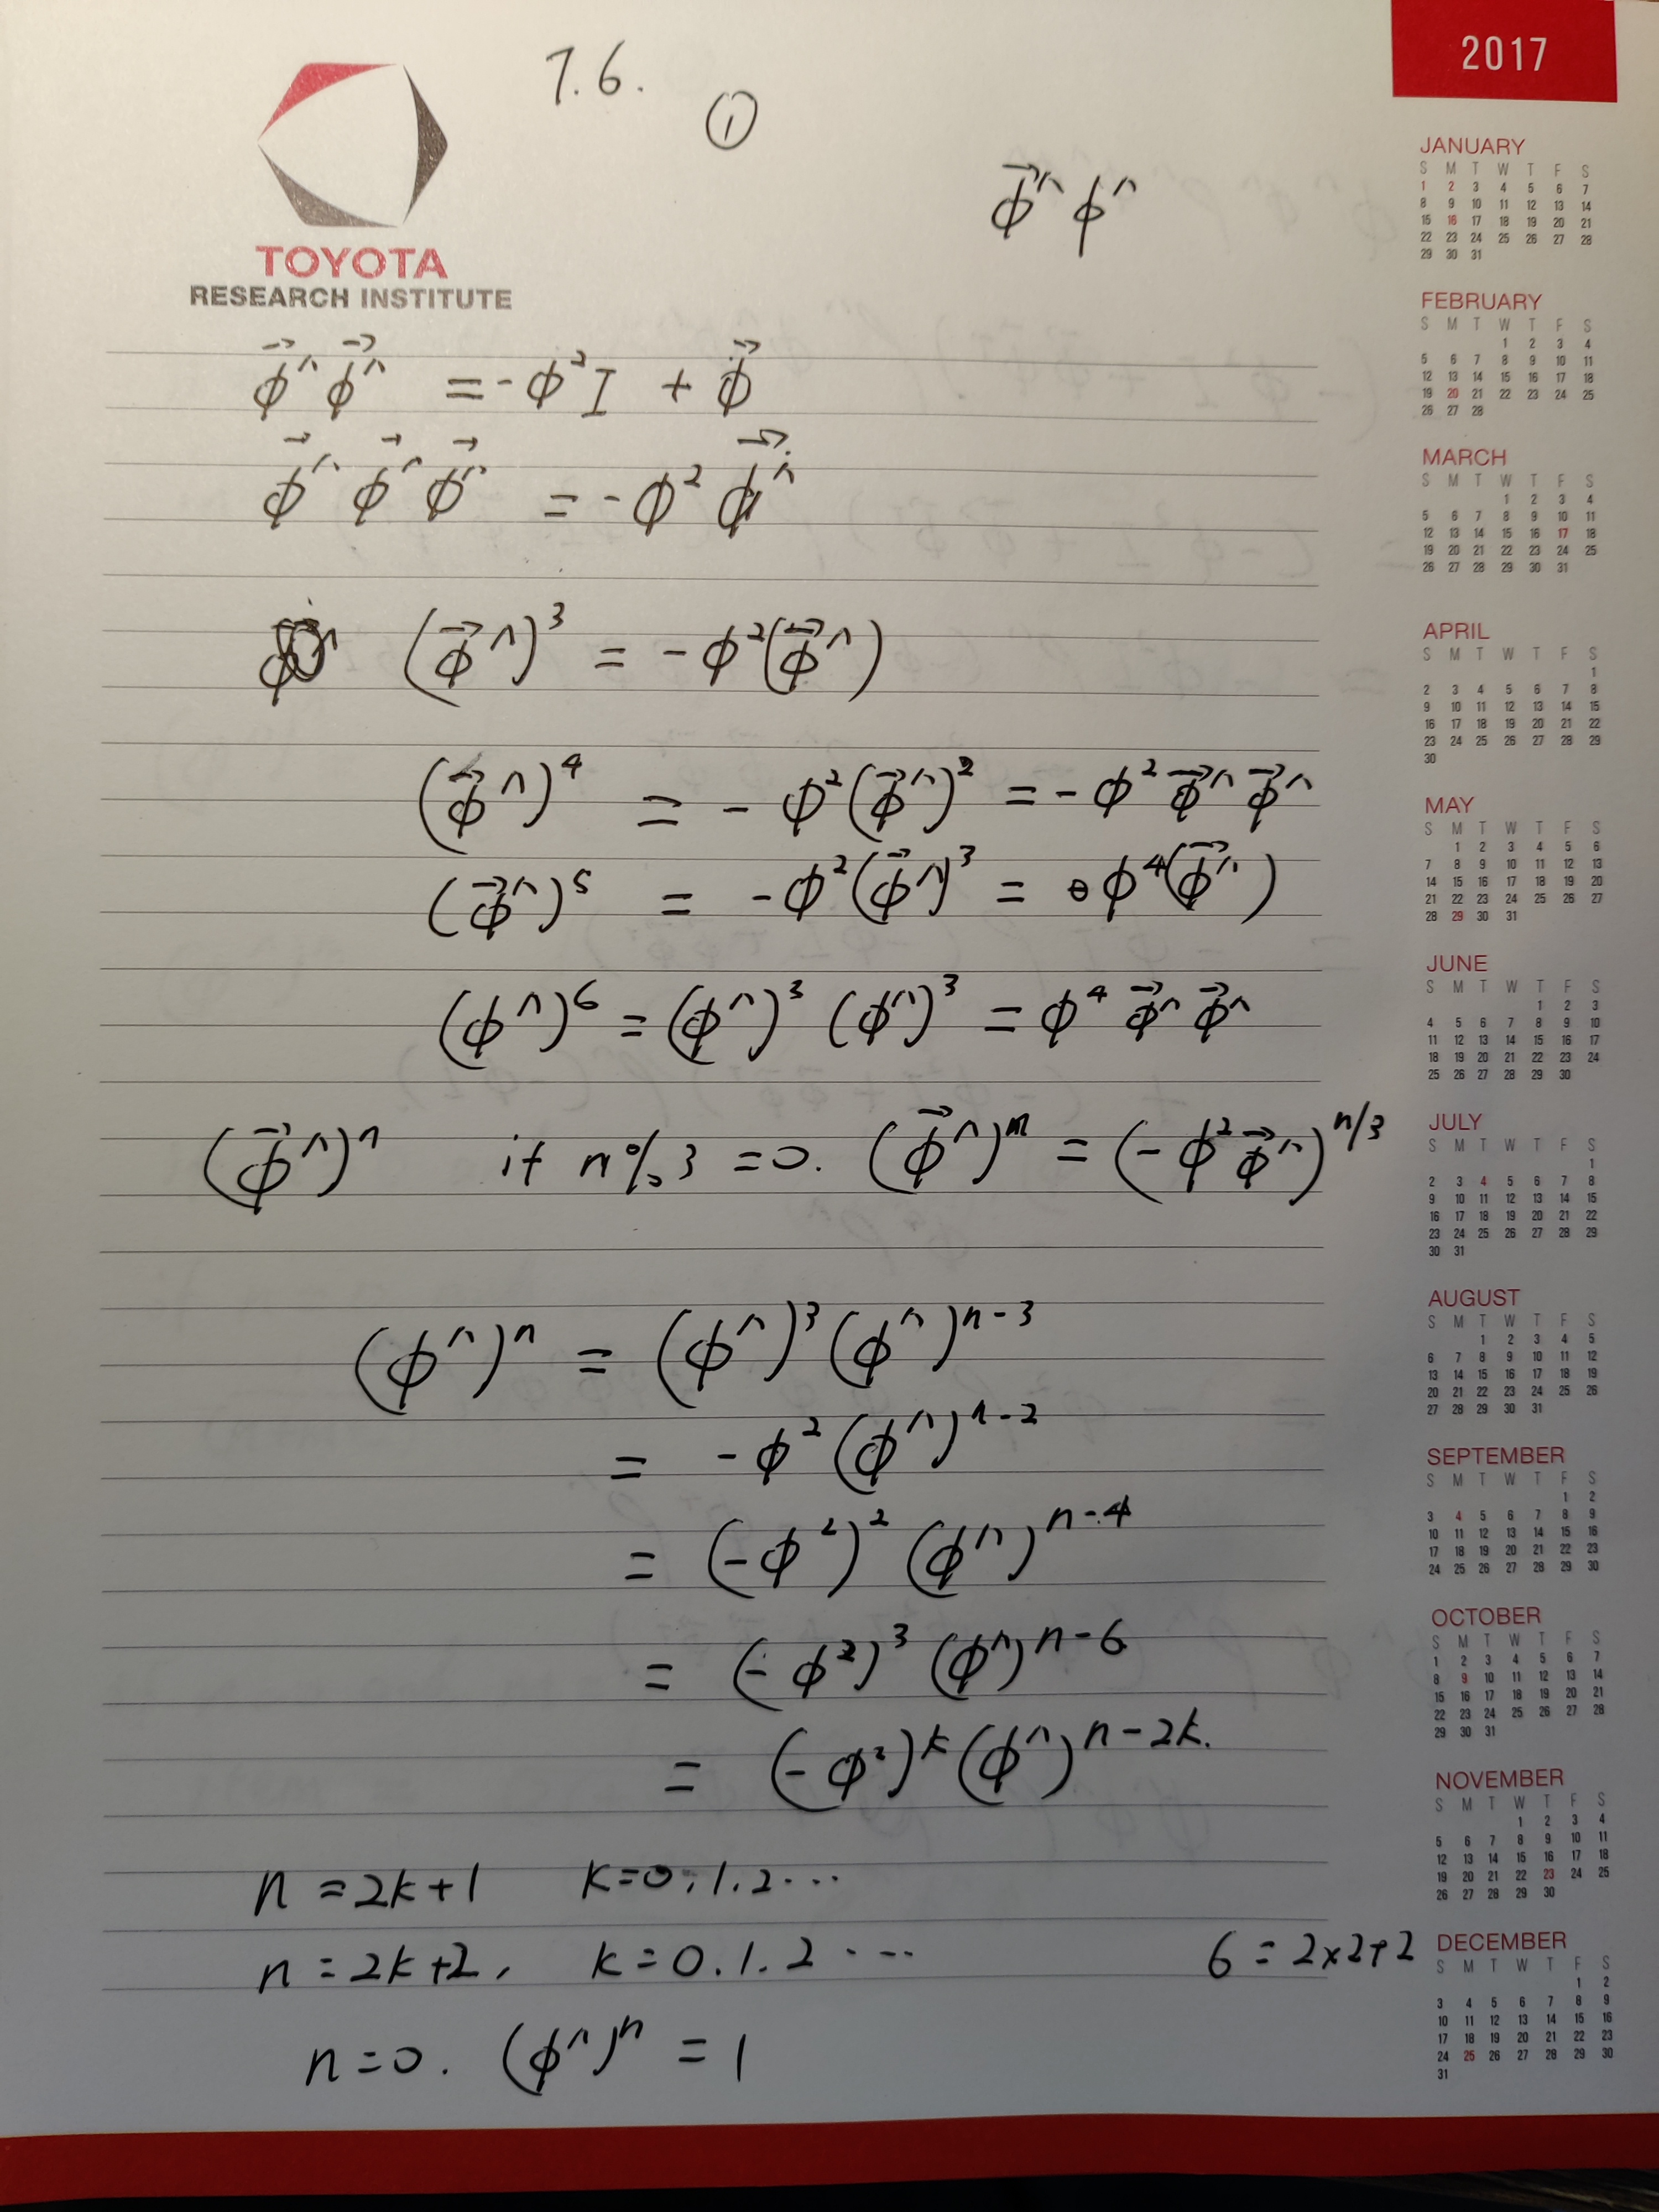 7.6.
①
2017
TOYOTA
RESEARCH INSTITUTE
ϕ⃗^ ϕ^
ϕ⃗^ ϕ⃗^ = -ϕ²I + ϕ⃗
ϕ⃗^ ϕ⃗^ ϕ⃗^ = -ϕ² ϕ⃗^
(ϕ⃗^)³ = -ϕ²(ϕ⃗^)
(ϕ⃗^)⁴ = -ϕ²(ϕ⃗^)² = -ϕ² ϕ⃗^ ϕ⃗^
(ϕ⃗^)⁵ = -ϕ²(ϕ⃗^)³ = ϕ⁴(ϕ⃗^)
(ϕ^)⁶ = (ϕ^)³ (ϕ^)³ = ϕ⁴ ϕ⃗^ ϕ⃗^
(ϕ⃗^)ⁿ if n%3 = 0. (ϕ⃗^)ⁿ = (-ϕ² ϕ⃗^)^{n/3}
(ϕ^)ⁿ = (ϕ^)³ (ϕ^)^{n-3}
= -ϕ² (ϕ^)^{n-2}
= (-ϕ²)² (ϕ^)^{n-4}
= (-ϕ²)³ (ϕ^)^{n-6}
= (-ϕ²)^k (ϕ^)^{n-2k}.
n = 2k+1 k=0.1.2...
n = 2k+2, k=0.1.2...
6 = 2×2+2
n=0. (ϕ^)ⁿ = 1
JANUARY
S M T W T F S
1 2 3 4 5 6 7
8 9 10 11 12 13 14
15 16 17 18 19 20 21
22 23 24 25 26 27 28
29 30 31
FEBRUARY
S M T W T F S
1 2 3 4
5 6 7 8 9 10 11
12 13 14 15 16 17 18
19 20 21 22 23 24 25
26 27 28
MARCH
S M T W T F S
1 2 3 4
5 6 7 8 9 10 11
12 13 14 15 16 17 18
19 20 21 22 23 24 25
26 27 28 29 30 31
APRIL
S M T W T F S
1
2 3 4 5 6 7 8
9 10 11 12 13 14 15
16 17 18 19 20 21 22
23 24 25 26 27 28 29
30
MAY
S M T W T F S
1 2 3 4 5 6
7 8 9 10 11 12 13
14 15 16 17 18 19 20
21 22 23 24 25 26 27
28 29 30 31
JUNE
S M T W T F S
1 2 3
4 5 6 7 8 9 10
11 12 13 14 15 16 17
18 19 20 21 22 23 24
25 26 27 28 29 30
JULY
S M T W T F S
1
2 3 4 5 6 7 8
9 10 11 12 13 14 15
16 17 18 19 20 21 22
23 24 25 26 27 28 29
30 31
AUGUST
S M T W T F S
1 2 3 4 5
6 7 8 9 10 11 12
13 14 15 16 17 18 19
20 21 22 23 24 25 26
27 28 29 30 31
SEPTEMBER
S M T W T F S
1 2
3 4 5 6 7 8 9
10 11 12 13 14 15 16
17 18 19 20 21 22 23
24 25 26 27 28 29 30
OCTOBER
S M T W T F S
1 2 3 4 5 6 7
8 9 10 11 12 13 14
15 16 17 18 19 20 21
22 23 24 25 26 27 28
29 30 31
NOVEMBER
S M T W T F S
1 2 3 4
5 6 7 8 9 10 11
12 13 14 15 16 17 18
19 20 21 22 23 24 25
26 27 28 29 30
DECEMBER
S M T W T F S
1 2
3 4 5 6 7 8 9
10 11 12 13 14 15 16
17 18 19 20 21 22 23
24 25 26 27 28 29 30
31